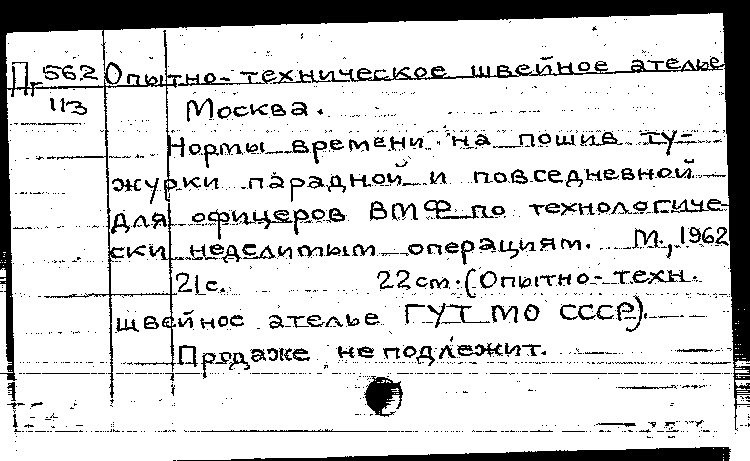 Пг 562 Опытно-техническое швейное ателье
113 Москва.
Нормы времени на пошив ту-
журки парадной и повседневной
для офицеров ВМФ по технологиче-
ски неделимым операциям. М., 1962
21с. 22см. (Опытно-техн.
швейное ателье ГУТ МО СССР).
Продаже не подлежит.